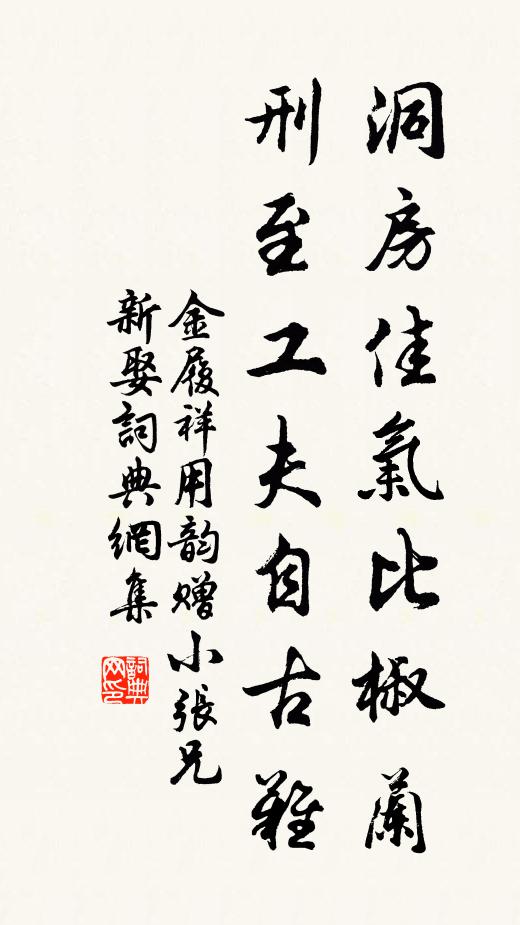 洞房佳氣比椒蘭
刑至工夫自古難
金履祥用韵赠小張兄
新娶詞典網集
詞典网印